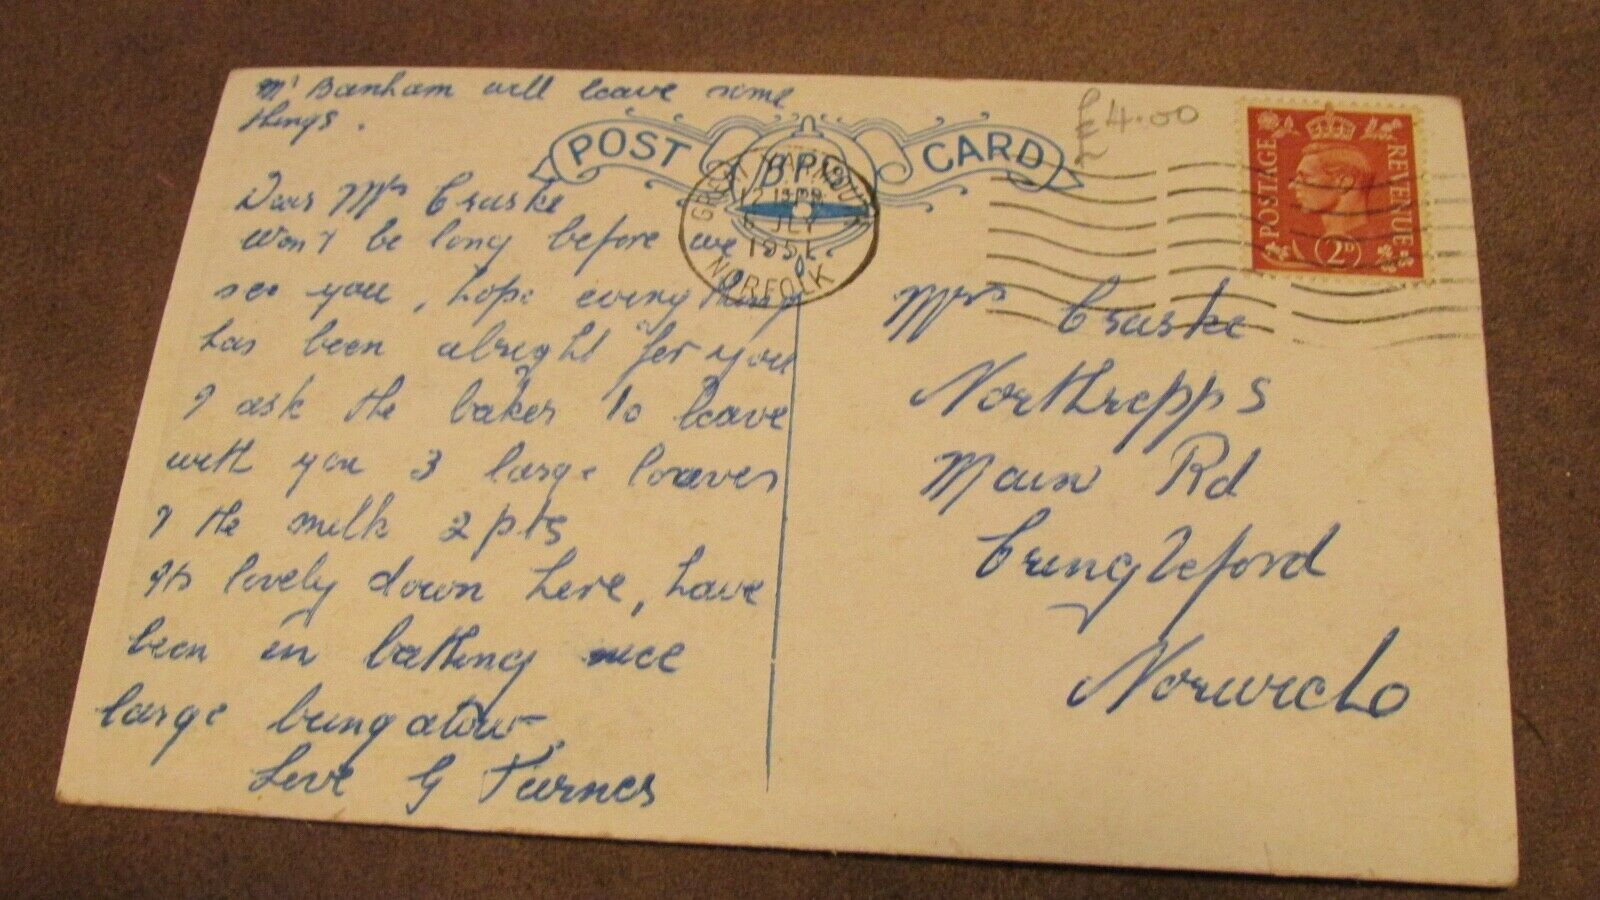 Mr Banham will leave some
things.
Dear Mrs Cruske
Won't be long before we
see you, hope everything
has been alright for you
I ask the baker to leave
with you 3 large loaves
& the milk 2 pts
Its lovely down here, have
been in bathing nice
large bungalow
Love G Turner
POST CARD
GREAT YARMOUTH
JLY
1951
NORFOLK
£4.00
POSTAGE REVENUE
2D
Mrs Cruske
Northrepps
Main Rd
Cringleford
Norwich